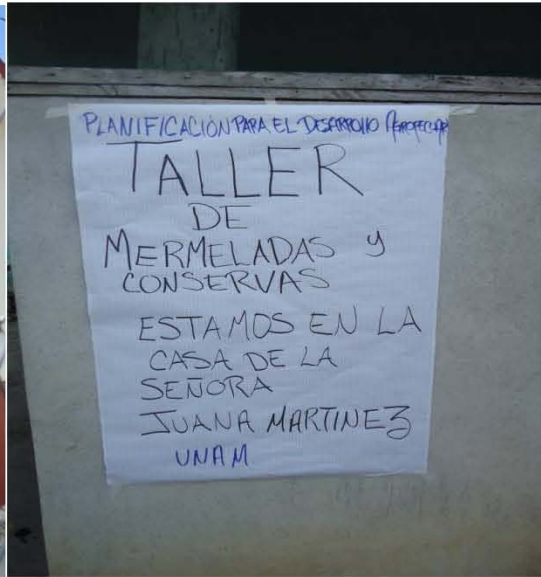 PLANIFICACIÓN PARA EL DESARROLLO AGROPECUAR
TALLER
DE
MERMELADAS y
CONSERVAS
ESTAMOS EN LA
CASA DE LA
SEÑORA
JUANA MARTINEZ
UNAM